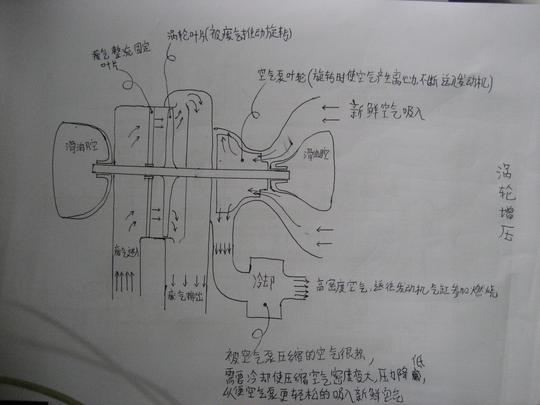 涡轮叶片(被废气推动旋转)
废气整流固定
叶片
空气泵叶轮(旋转时使空气产生离心力,不断送入发动机)
新鲜空气吸入
滑油腔
滑油腔
涡轮增压
废气进入
废气排出
冷却
高密度空气,送往发动机气缸参加燃烧
被空气泵压缩的空气很热,
需要冷却使压缩空气密度变大,压力降低,
以便空气泵更轻松的吸入新鲜空气